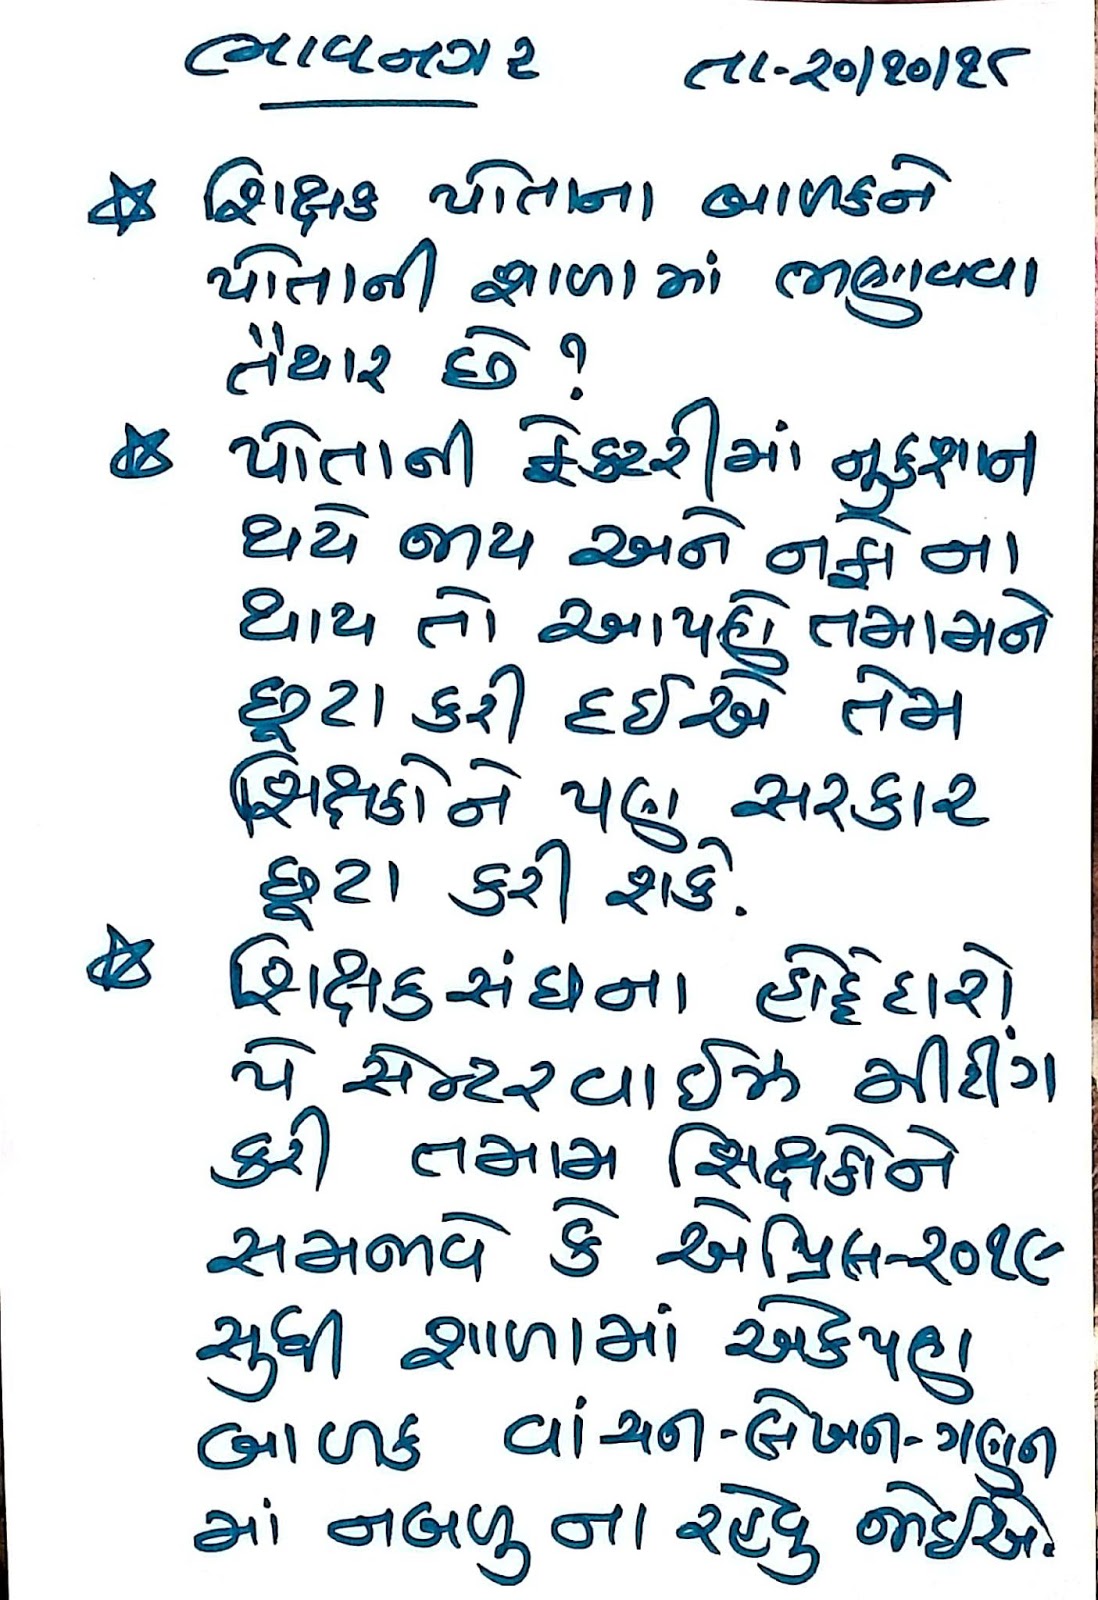 ભાવનગર તા-૨૦/૧૦/૧૮
☆ શિક્ષક પોતાના બાળકને
પોતાની શાળામાં ભણાવવા
તૈયાર છે ?
☆ પોતાની ફેક્ટરીમાં નૂકશાન
થયે જાય અને નફો ના
થાય તો આપણે તમામને
છૂટા કરી દઈએ તેમ
શિક્ષકોને પણ સરકાર
છૂટા કરી શકે.
☆ શિક્ષકસંઘના હોદ્દેદારો
યે સેન્ટરવાઈઝ મીટીંગ
કરી તમામ શિક્ષકોને
સમજાવે કે એપ્રિલ-૨૦૧૯
સુધી શાળામાં એકપણ
બાળક વાંચન-લેખન-ગણન
માં નબળુ ના રહેવુ જોઈએ.